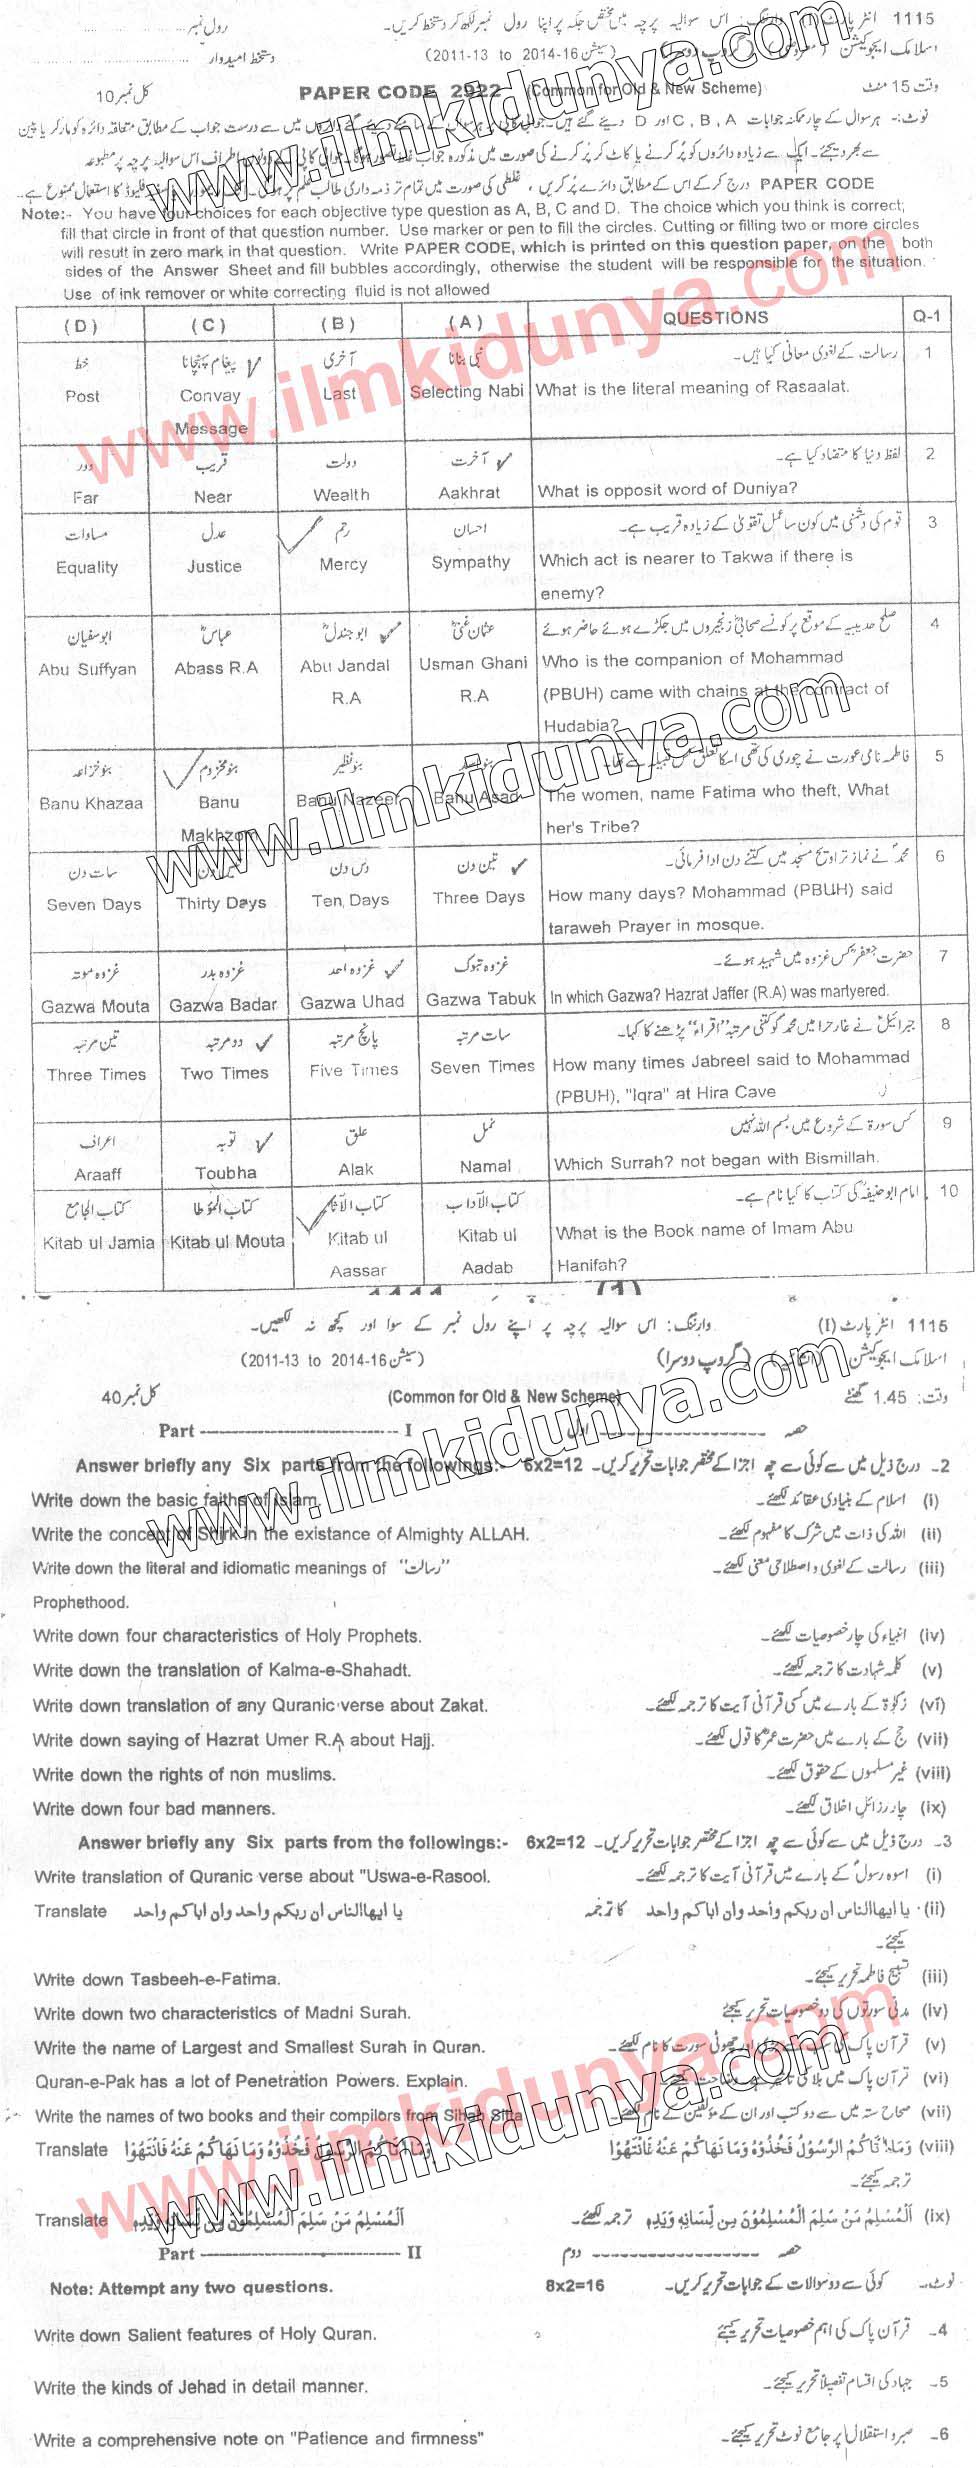 1115 انٹر پارٹ (I) وارننگ: اس سوالیہ پرچہ میں مختص جگہ پر اپنا رول نمبر لکھ کر دستخط کریں۔ رول نمبر
اسلامک ایجوکیشن (معروضی) (گروپ دوسرا) (سیشن 16-2014 to 2011-13) دستخط امیدوار
وقت 15 منٹ (Common for Old & New Scheme) PAPER CODE 2922 کل نمبر 10
نوٹ:- ہر سوال کے چار ممکنہ جوابات A ، B ، C اور D دیئے گئے ہیں۔ میں سے درست جواب کے مطابق متعلقہ دائرہ کو مارکر یا پین
سے بھر دیجئے۔ ایک سے زیادہ دائروں کو پُر کرنے یا کاٹ کر پُر کرنے کی صورت میں مذکورہ جواب غلط تصور ہوگا۔ اس سوالیہ پرچہ پر مطبوعہ
PAPER CODE درج کرکے اس کے مطابق دائرے پُر کریں، غلطی کی صورت میں تمام تر ذمہ داری طالب علم پر ہوگی۔ فلیوڈ کا استعمال ممنوع ہے۔
Note:- You have four choices for each objective type question as A, B, C and D. The choice which you think is correct;
fill that circle in front of that question number. Use marker or pen to fill the circles. Cutting or filling two or more circles
will result in zero mark in that question. Write PAPER CODE, which is printed on this question paper, on the both
sides of the Answer Sheet and fill bubbles accordingly, otherwise the student will be responsible for the situation.
Use of ink remover or white correcting fluid is not allowed
(D) (C) (B) (A) QUESTIONS Q-1
خط پیغام پہنچانا آخری نبی بنانا رسالت کے لغوی معانی کیا ہیں۔ 1
Post Convay Last Selecting Nabi What is the literal meaning of Rasaalat.
Message
دور قریب دولت آخرت لفظ دنیا کا متضاد کیا ہے۔ 2
Far Near Wealth Aakhrat What is opposit word of Duniya?
مساوات عدل رحم احسان قوم کی دشمنی میں کون سا عمل تقویٰ کے زیادہ قریب ہے۔ 3
Equality Justice Mercy Sympathy Which act is nearer to Takwa if there is
enemy?
ابوسفیان عباسؓ ابوجندلؓ عثمان غنیؓ صلح حدیبیہ کے موقع پر کونسے صحابیؓ زنجیروں میں جکڑے ہوئے حاضر ہوئے 4
Abu Suffyan Abass R.A Abu Jandal Usman Ghani Who is the companion of Mohammad
R.A R.A (PBUH) came with chains at the contract of
Hudabia?
بنو خزاعہ بنو مخزوم بنو نظیر بنو اسد فاطمہ نامی عورت نے چوری کی تھی اسکا تعلق کس قبیلہ سے تھا۔ 5
Banu Khazaa Banu Banu Nazeer Banu Asad The women, name Fatima who theft, What
Makhzom her's Tribe?
سات دن تیس دن دس دن تین دن محمدؐ نے نماز تراویح مسجد میں کتنے دن ادا فرمائی۔ 6
Seven Days Thirty Days Ten Days Three Days How many days? Mohammad (PBUH) said
taraweh Prayer in mosque.
غزوہ موتہ غزوہ بدر غزوہ احد غزوہ تبوک حضرت جعفرؓ کس غزوہ میں شہید ہوئے۔ 7
Gazwa Mouta Gazwa Badar Gazwa Uhad Gazwa Tabuk In which Gazwa? Hazrat Jaffer (R.A) was martyered.
تین مرتبہ دو مرتبہ پانچ مرتبہ سات مرتبہ جبرائیلؑ نے غار حرا میں محمدؐ کو کتنی مرتبہ "اقراء" پڑھنے کا کہا۔ 8
Three Times Two Times Five Times Seven Times How many times Jabreel said to Mohammad
(PBUH), "Iqra" at Hira Cave
اعراف توبہ علق نمل کس سورۃ کے شروع میں بسم اللہ نہیں 9
Araaff Toubha Alak Namal Which Surrah? not began with Bismillah.
کتاب الجامع کتاب المؤطا کتاب الآثار کتاب الآداب امام ابو حنیفہؒ کی کتاب کا کیا نام ہے۔ 10
Kitab ul Jamia Kitab ul Mouta Kitab ul Kitab ul What is the Book name of Imam Abu
Aassar Aadab Hanifah?
1115 انٹر پارٹ (I) وارننگ: اس سوالیہ پرچہ پر اپنے رول نمبر کے سوا اور کچھ نہ لکھیں۔
اسلامک ایجوکیشن (انشائیہ) (گروپ دوسرا) (سیشن 16-2014 to 2011-13)
وقت: 1.45 گھنٹے (Common for Old & New Scheme) کل نمبر 40
Part ---------- I حصہ ---------- اول
Answer briefly any Six parts from the followings:- 6x2=12 2۔ درج ذیل میں سے کوئی سے چھ اجزا کے مختصر جوابات تحریر کریں۔
Write down the basic faiths of Islam. (i) اسلام کے بنیادی عقائد لکھئے۔
Write the concept of Shirk in the existance of Almighty ALLAH. (ii) اللہ کی ذات میں شرک کا مفہوم لکھئے۔
Write down the literal and idiomatic meanings of "رسالت" (iii) رسالت کے لغوی و اصطلاحی معنی لکھئے۔
Prophethood.
Write down four characteristics of Holy Prophets. (iv) انبیاء کی چار خصوصیات لکھئے۔
Write down the translation of Kalma-e-Shahadt. (v) کلمہ شہادت کا ترجمہ لکھئے۔
Write down translation of any Quranic verse about Zakat. (vi) زکوٰۃ کے بارے میں کسی قرآنی آیت کا ترجمہ لکھئے۔
Write down saying of Hazrat Umer R.A about Hajj. (vii) حج کے بارے میں حضرت عمرؓ کا قول لکھئے۔
Write down the rights of non muslims. (viii) غیر مسلموں کے حقوق لکھئے۔
Write down four bad manners. (ix) چار رزائل اخلاق لکھئے۔
Answer briefly any Six parts from the followings:- 6x2=12 3۔ درج ذیل میں سے کوئی سے چھ اجزا کے مختصر جوابات تحریر کریں۔
Write translation of Quranic verse about "Uswa-e-Rasool. (i) اسوہ رسولؐ کے بارے میں قرآنی آیت کا ترجمہ لکھئے۔
Translate یا ایھاالناس ان ربکم واحد وان اباکم واحد (ii) یا ایھاالناس ان ربکم واحد وان اباکم واحد کا ترجمہ
کیجئے۔
Write down Tasbeeh-e-Fatima. (iii) تسبیح فاطمہ تحریر کیجئے۔
Write down two characteristics of Madni Surah. (iv) مدنی سورتوں کی دو خصوصیات تحریر کیجئے
Write the name of Largest and Smallest Surah in Quran. (v) قرآن پاک کی سب سے بڑی اور چھوٹی سورت کا نام لکھئے۔
Quran-e-Pak has a lot of Penetration Powers. Explain. (vi) قرآن پاک میں بلا کی تاثیر ہے وضاحت کیجئے۔
Write the names of two books and their compilors from Sihah Sitta (vii) صحاح ستہ میں سے دو کتب اور ان کے مؤلفین کے نام لکھئے۔
Translate وَمَا اٰتَاكُمُ الرَّسُوْلُ فَخُذُوْهُ وَمَا نَهَاكُمْ عَنْهُ فَانْتَهُوْا (viii) وَمَا اٰتَاكُمُ الرَّسُوْلُ فَخُذُوْهُ وَمَا نَهَاكُمْ عَنْهُ فَانْتَهُوْا
ترجمہ کیجئے۔
Translate اَلْمُسْلِمُ مَنْ سَلِمَ الْمُسْلِمُوْنَ مِنْ لِّسَانِهٖ وَيَدِهٖ (ix) اَلْمُسْلِمُ مَنْ سَلِمَ الْمُسْلِمُوْنَ مِنْ لِّسَانِهٖ وَيَدِهٖ ترجمہ لکھئے۔
Part ---------- II حصہ ---------- دوم
Note: Attempt any two questions. 8x2=16 نوٹ۔ کوئی سے دو سوالات کے جوابات تحریر کریں۔
Write down Salient features of Holy Quran. 4۔ قرآن پاک کی اہم خصوصیات تحریر کیجئے
Write the kinds of Jehad in detail manner. 5۔ جہاد کی اقسام تفصیلاً تحریر کیجئے۔
Write a comprehensive note on "Patience and firmness" 6۔ صبر و استقلال پر جامع نوٹ تحریر کیجئے۔
www.ilmkidunya.com
www.ilmkidunya.com
www.ilmkidunya.com
www.ilmkidunya.com
www.ilmkidunya.com
www.ilmkidunya.com